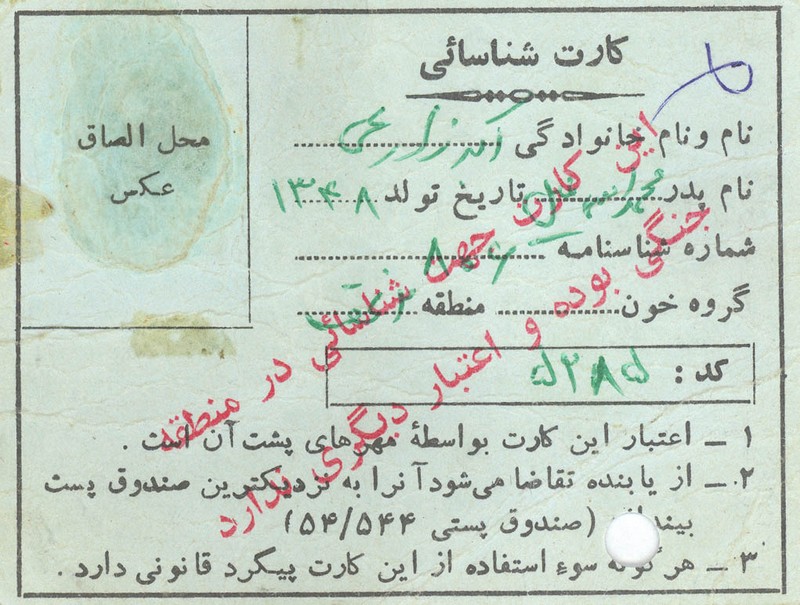 کارت شناسائی
محل الصاق
عکس
نام ونام خانوادگی
نام پدر تاریخ تولد ۱۳۴۸
شماره شناسنامه ۸
گروه خون منطقه
کد :
۱ ـ اعتبار این کارت بواسطهٔ مهرهای پشت آن است .
۲ ـ از یابنده تقاضا می‌شود آنرا به نزدیکترین صندوق پست
بیندازد (صندوق پستی ۵۴/۵۴۴)
۳ ـ هر گونه سوءِ استفاده از این کارت پیگرد قانونی دارد .
این کارت جهت شناسائی در منطقه
جنگی بوده و اعتبار دیگری ندارد